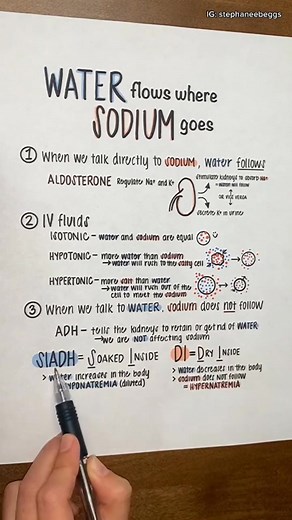 IG: stephaneebeggs
WATER flows where
SODIUM goes
① When we talk directly to SODIUM, water follows
ALDOSTERONE Regulates Na+ and K+
stimulate kidneys to absorb Na+
→ water will follow
OR VICE VERSA
secrete K+ in urine
② IV fluids
ISOTONIC - water and sodium are equal
HYPOTONIC - more water than sodium
→ water will rush to the salty cell
HYPERTONIC - more salt than water
→ water will rush out of the
cell to meet the sodium
③ When we talk to WATER, sodium does not follow
ADH - tells the kidneys to retain or get rid of WATER
→ we are NOT affecting sodium
SIADH = Soaked Inside
> water increases in the body
HYPONATREMIA (diluted)
DI = Dry Inside
> water decreases in the body
> sodium does NOT follow
= HYPERNATREMIA